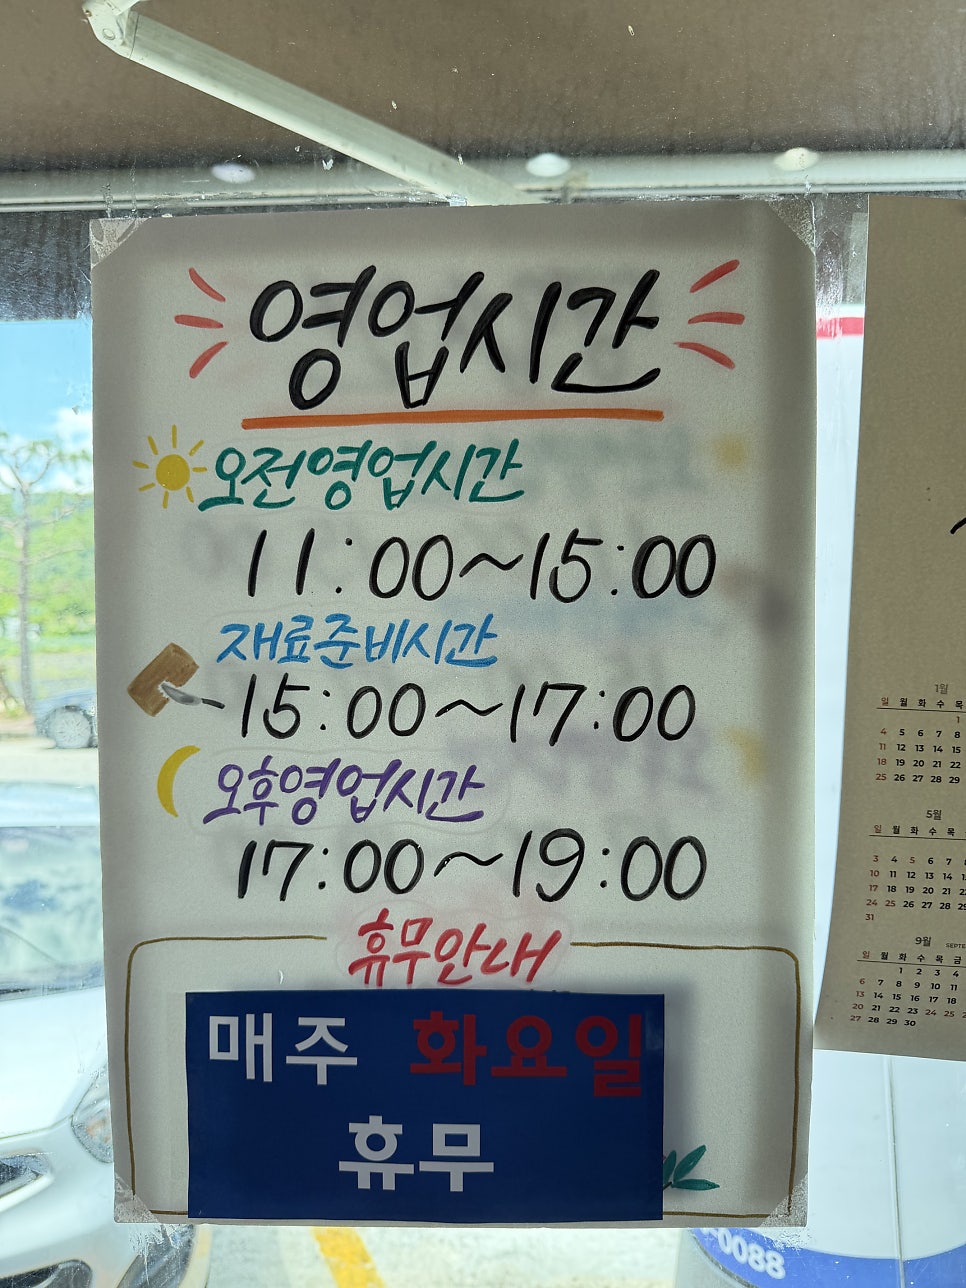 영업시간
오전영업시간
11:00~15:00
재료준비시간
15:00~17:00
오후영업시간
17:00~19:00
휴무안내
매주 화요일
휴무
1월
일 월 화 수 목
1
4 5 6 7 8
11 12 13 14 15
18 19 20 21 22
25 26 27 28 29
5월
일 월 화 수 목
3 4 5 6 7
10 11 12 13 14
17 18 19 20 21
24 25 26 27 28
31
9월
일 월 화 수 목 금
1 2 3 4
6 7 8 9 10 11
13 14 15 16 17 18
20 21 22 23 24 25
27 28 29 30
0088